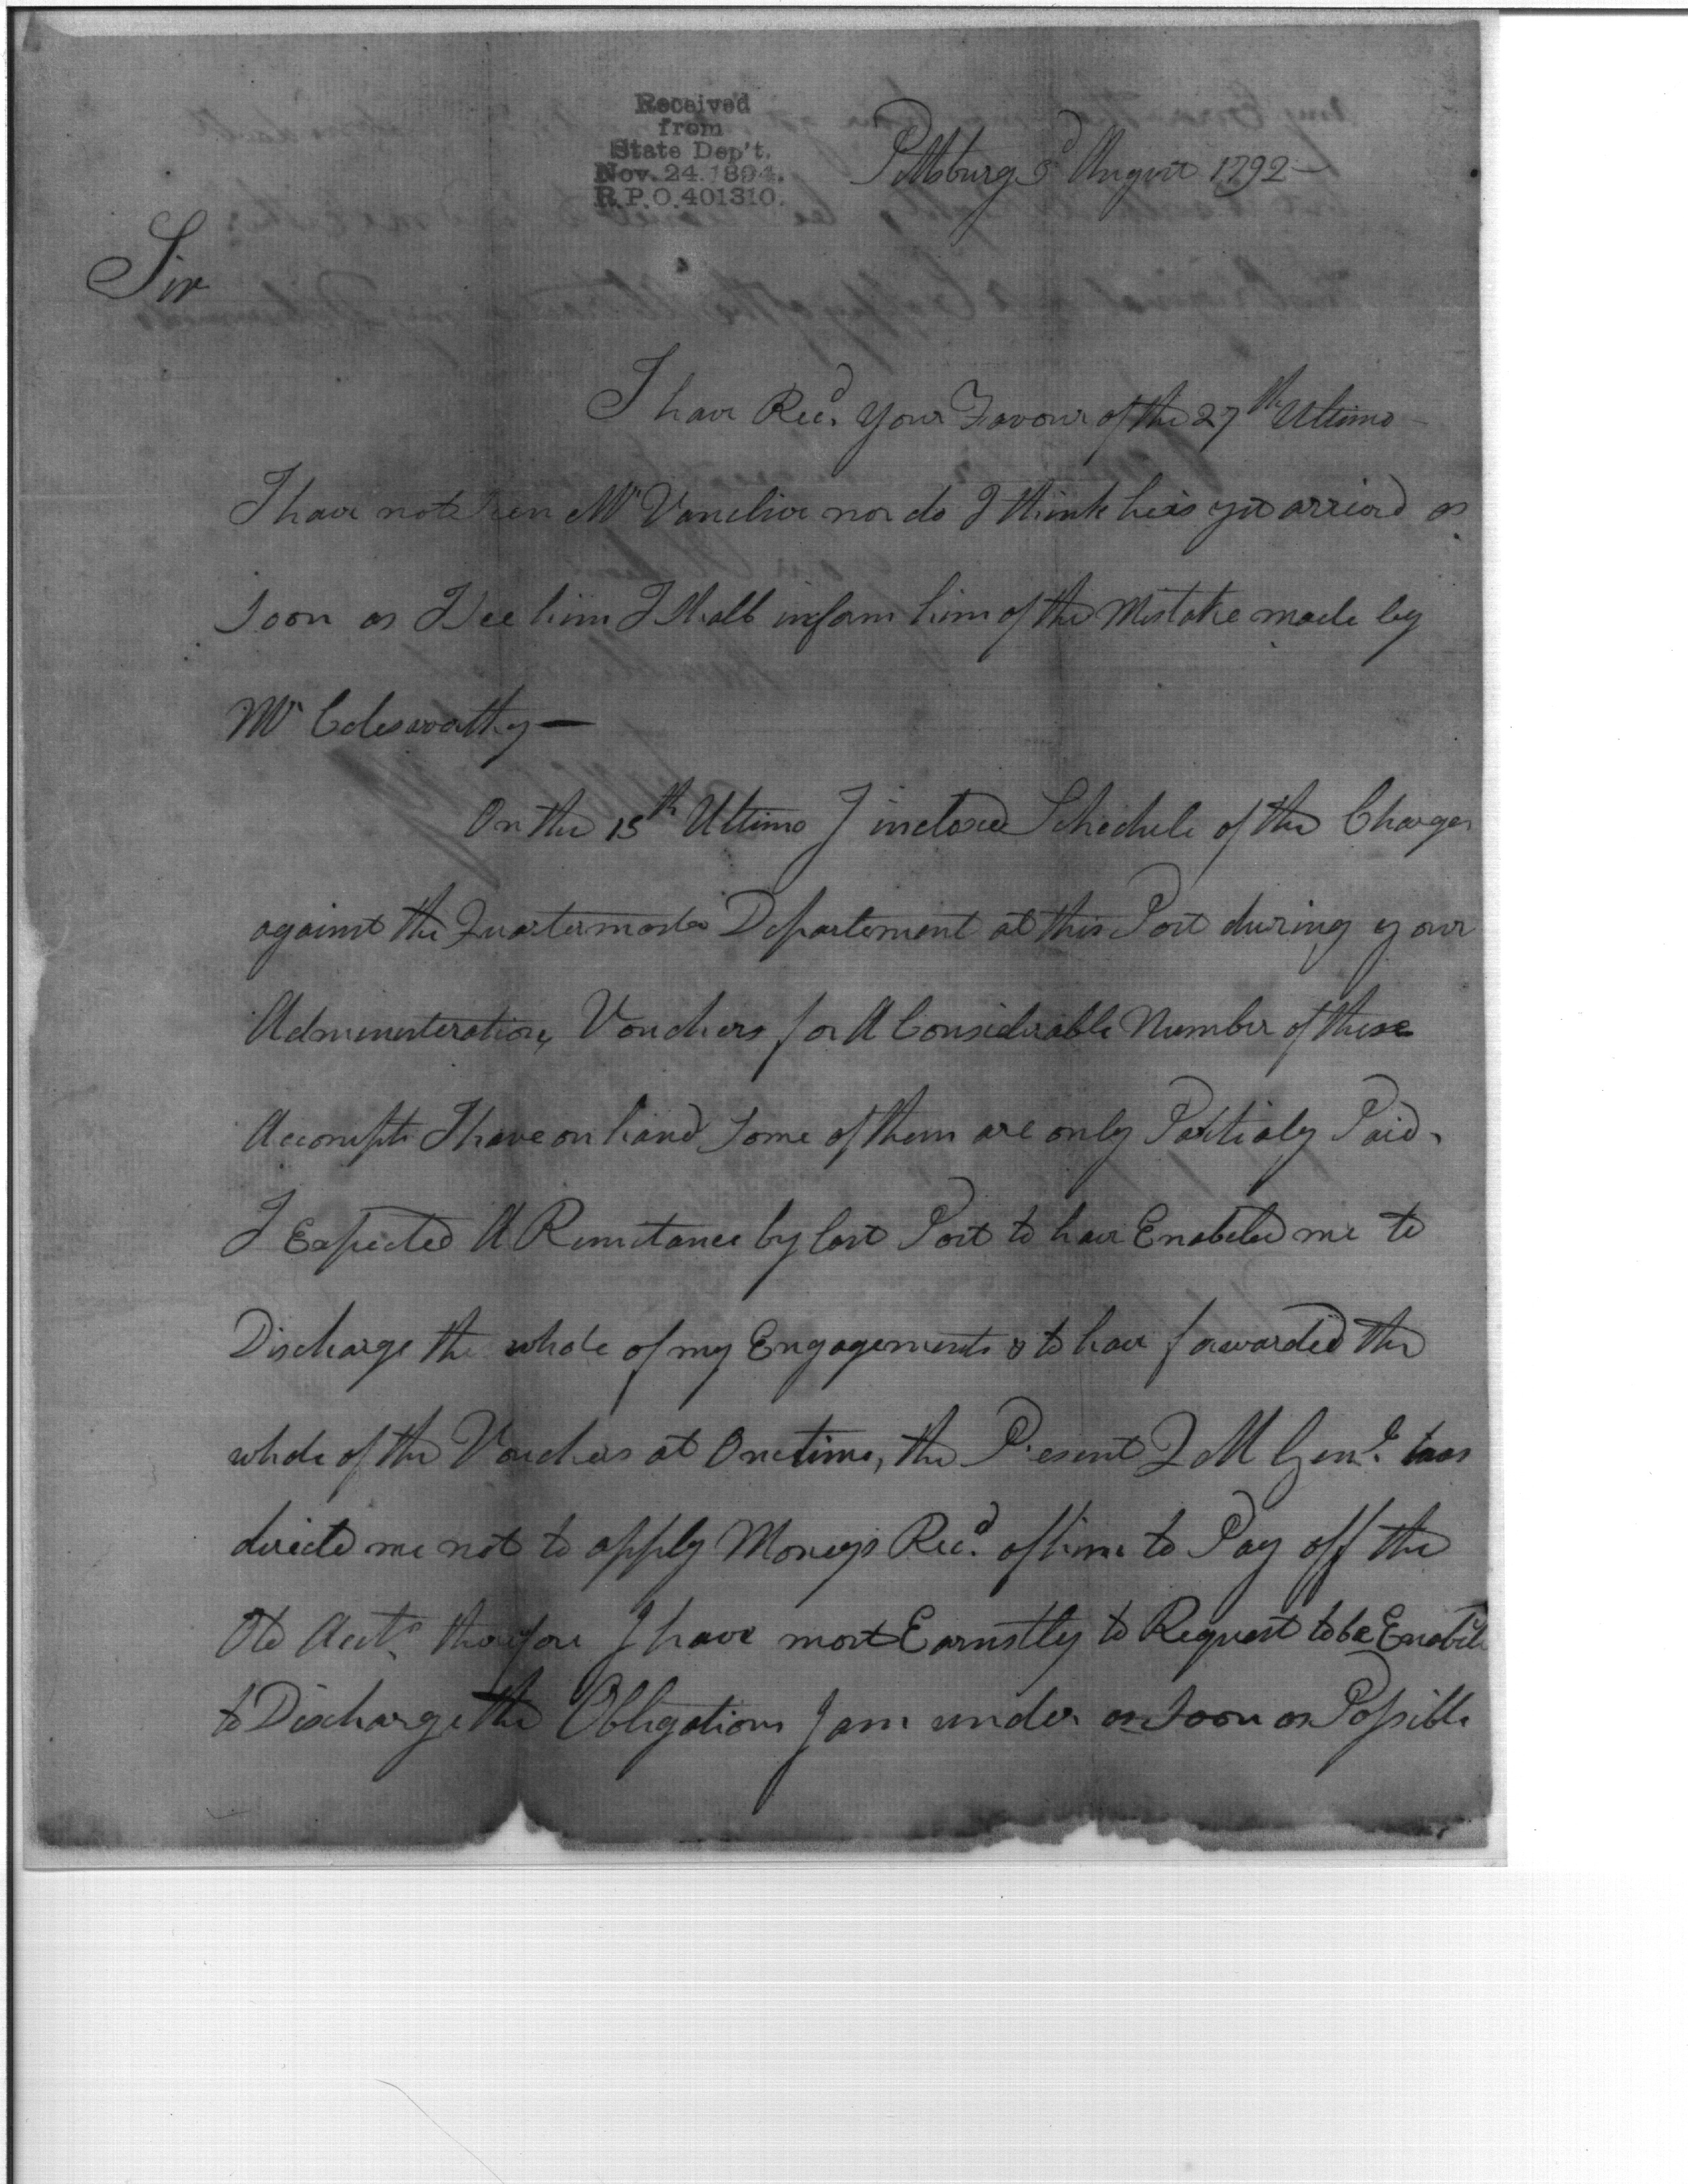 Received
from
State Dep't.
Nov. 24. 1894.
R.P.O. 401310.
Pittsburg 3d August 1792 —
Sir
I have Recd. your Favour of the 27th Ultimo —
I have not seen Mr Vanclive nor do I think he is yet arrived as
soon as I see him I shall inform him of the Mistake made by
Mr Colesworthy —
On the 15th Ultimo I inclosed Schedule of the Charges
against the Quartermaster Department at this Post during your
Admenesteration, Vouchers for A Considerable Number of these
Accompts I have on hand some of them are only Partialy Paid.
I Expected A Remitance by last Post to have Enabeled me to
Discharge the whole of my Engagements & to have forwarded the
whole of the Vouchers at One time, the Present Q M Genl. has
directed me not to apply Moneys Recd. of him to Pay off the
Old Acct. therefore I have most Earnstly to Request to be Enabeled
to Discharge the Obligations I am under as soon as Possible